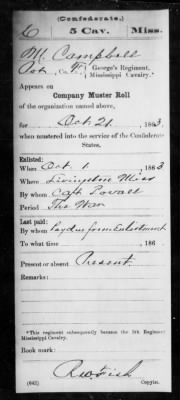 (Confederate.)
C 5 Cav. Miss.
M. Campbell
George's Regiment,
Mississippi Cavalry.*
Appears on
Company Muster Roll
of the organization named above,
for Oct 26, 1863
when mustered into the service of the Confederate
States.
Enlisted:
When Oct 1, 1863
Where Livingston Miss
By whom Capt Powell
Period The War
Last paid:
By whom Pay due from Enlistment
To what time , 186
Present or absent Present.
Remarks:
*This regiment subsequently became the 5th Regiment
Mississippi Cavalry.
Book mark:
(642) Copyist.